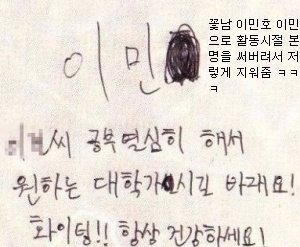 꽃남 이민호 이민
으로 활동시절 본
명을 써버려서 저
렇게 지워줌 ㅋㅋ
ㅋ
이민
씨 공부 열심히 해서
원하는 대학가시길 바래요!
화이팅!! 항상 건강하세요!